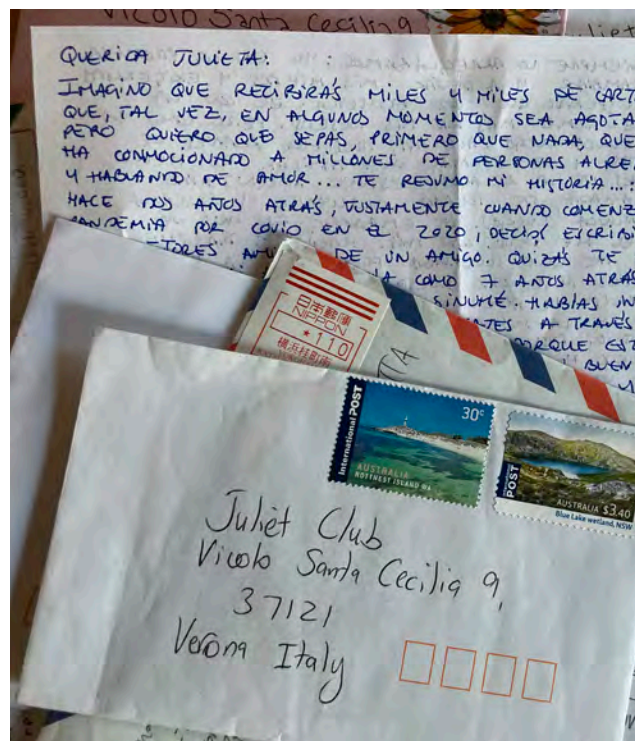 Vicolo Santa Cecilia 9
QUERIDA JULIETA:
IMAGINO QUE RECIBIRÁS MILES Y MILES DE CART
QUE, TAL VEZ, EN ALGUNOS MOMENTOS SEA AGOTA
PERO QUIERO QUE SEPAS, PRIMERO QUE NADA, QUE
HA CONMOCIONADO A MILLONES DE PERSONAS ALRE
Y HABLANDO DE AMOR... TE RESUMO MI HISTORIA...
HACE DOS AÑOS ATRÁS, JUSTAMENTE CUANDO COMENZ
PANDEMIA POR COVID EN EL 2020, DECIDÍ ESCRIBI
DE UN AMIGO. QUIZÁS TE
COMO 7 AÑOS ATRÁS
HABÍAS
A TRAVÉS
PORQUE EST
BUEN
日本郵便
NIPPON
★110
横浜桂町南
International POST
30c
AUSTRALIA
ROTTNEST ISLAND WA
POST
AUSTRALIA $3.40
Blue Lake wetland, NSW
Juliet Club
Vicolo Santa Cecilia 9,
37121
Verona Italy